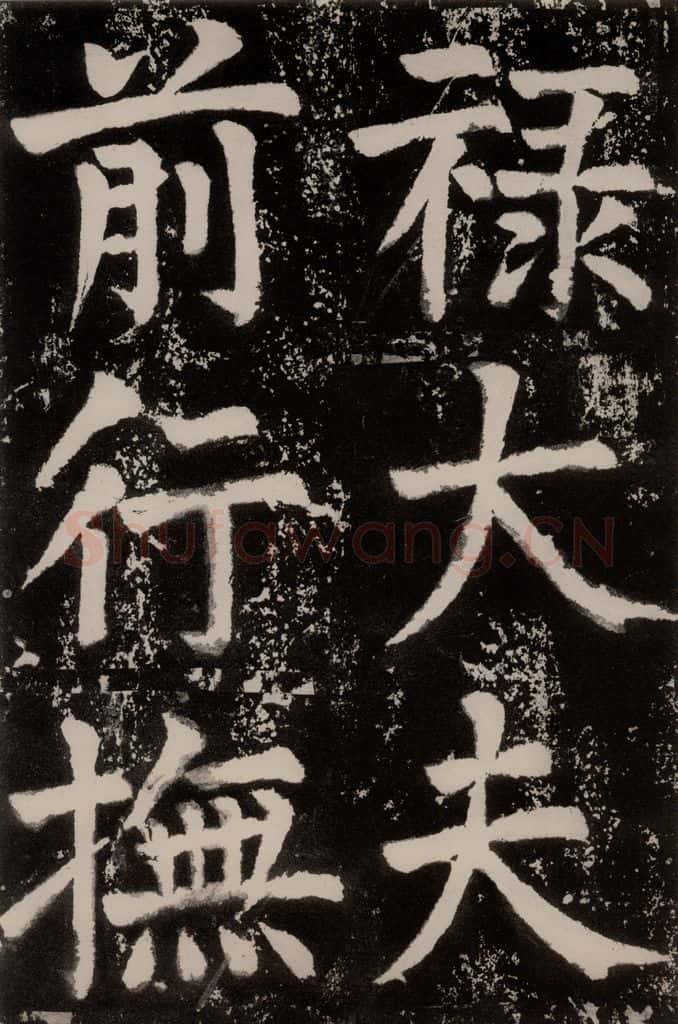 禄大夫
前行撫
Shufawang.CN